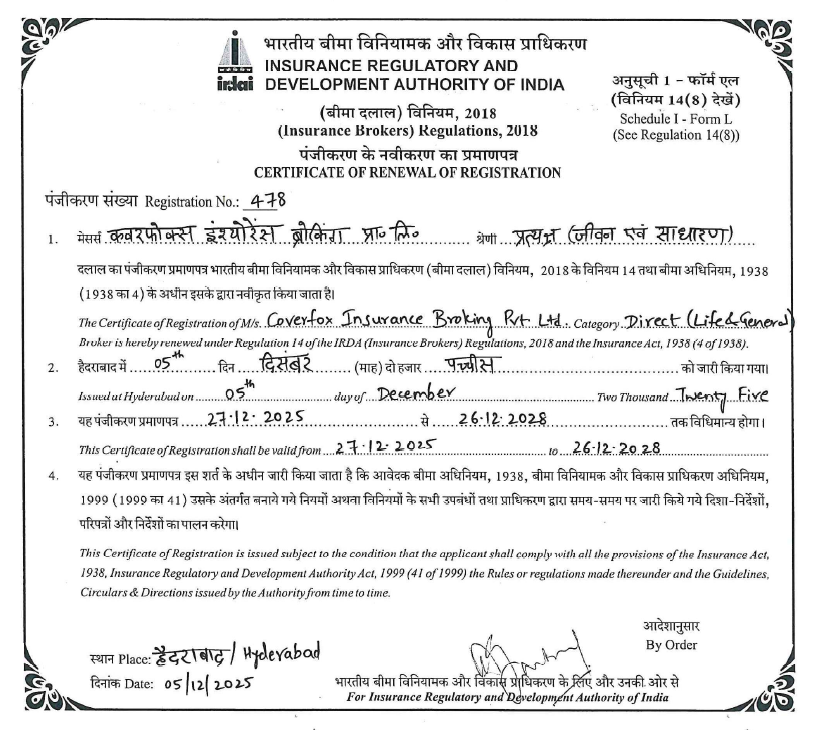 भारतीय बीमा विनियामक और विकास प्राधिकरण
INSURANCE REGULATORY AND
irdai DEVELOPMENT AUTHORITY OF INDIA
अनुसूची 1 - फॉर्म एल
(विनियम 14(8) देखें)
Schedule I - Form L
(See Regulation 14(8))
(बीमा दलाल) विनियम, 2018
(Insurance Brokers) Regulations, 2018
पंजीकरण के नवीकरण का प्रमाणपत्र
CERTIFICATE OF RENEWAL OF REGISTRATION
पंजीकरण संख्या Registration No.: 478
1. मेसर्स कवरफोक्स इंश्योरेंस ब्रोकिंग प्रा॰ लि॰ श्रेणी प्रत्यक्ष (जीवन एवं साधारण)
दलाल का पंजीकरण प्रमाणपत्र भारतीय बीमा विनियामक और विकास प्राधिकरण (बीमा दलाल) विनियम, 2018 के विनियम 14 तथा बीमा अधिनियम, 1938
(1938 का 4) के अधीन इसके द्वारा नवीकृत किया जाता है।
The Certificate of Registration of M/s. Coverfox Insurance Broking Pvt Ltd. Category Direct (Life & General)
Broker is hereby renewed under Regulation 14 of the IRDA (Insurance Brokers) Regulations, 2018 and the Insurance Act, 1938 (4 of 1938).
2. हैदराबाद में 05th दिन दिसंबर (माह) दो हजार पच्चीस को जारी किया गया।
Issued at Hyderabad on 05th day of December Two Thousand Twenty Five
3. यह पंजीकरण प्रमाणपत्र 27.12.2025 से 26.12.2028 तक विधिमान्य होगा।
This Certificate of Registration shall be valid from 27.12.2025 to 26.12.2028
4. यह पंजीकरण प्रमाणपत्र इस शर्त के अधीन जारी किया जाता है कि आवेदक बीमा अधिनियम, 1938, बीमा विनियामक और विकास प्राधिकरण अधिनियम,
1999 (1999 का 41) उसके अंतर्गत बनाये गये नियमों अथवा विनियमों के सभी उपबंधों तथा प्राधिकरण द्वारा समय-समय पर जारी किये गये दिशा-निर्देशों,
परिपत्रों और निर्देशों का पालन करेगा।
This Certificate of Registration is issued subject to the condition that the applicant shall comply with all the provisions of the Insurance Act,
1938, Insurance Regulatory and Development Authority Act, 1999 (41 of 1999) the Rules or regulations made thereunder and the Guidelines,
Circulars & Directions issued by the Authority from time to time.
आदेशानुसार
By Order
स्थान Place: हैदराबाद / Hyderabad
दिनांक Date: 05/12/2025
भारतीय बीमा विनियामक और विकास प्राधिकरण के लिए और उनकी ओर से
For Insurance Regulatory and Development Authority of India